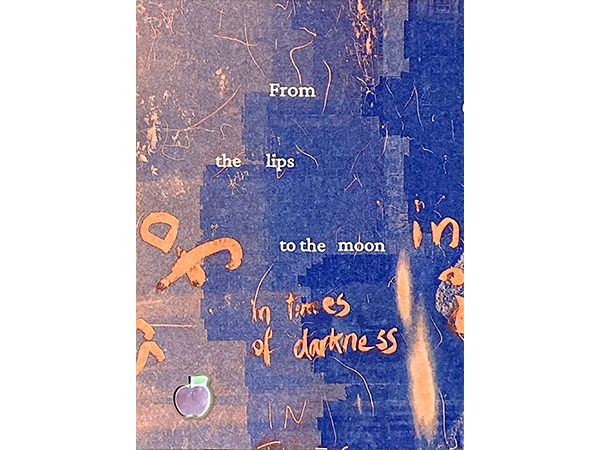 From
the lips
to the moon
in
in times
of darkness
IN